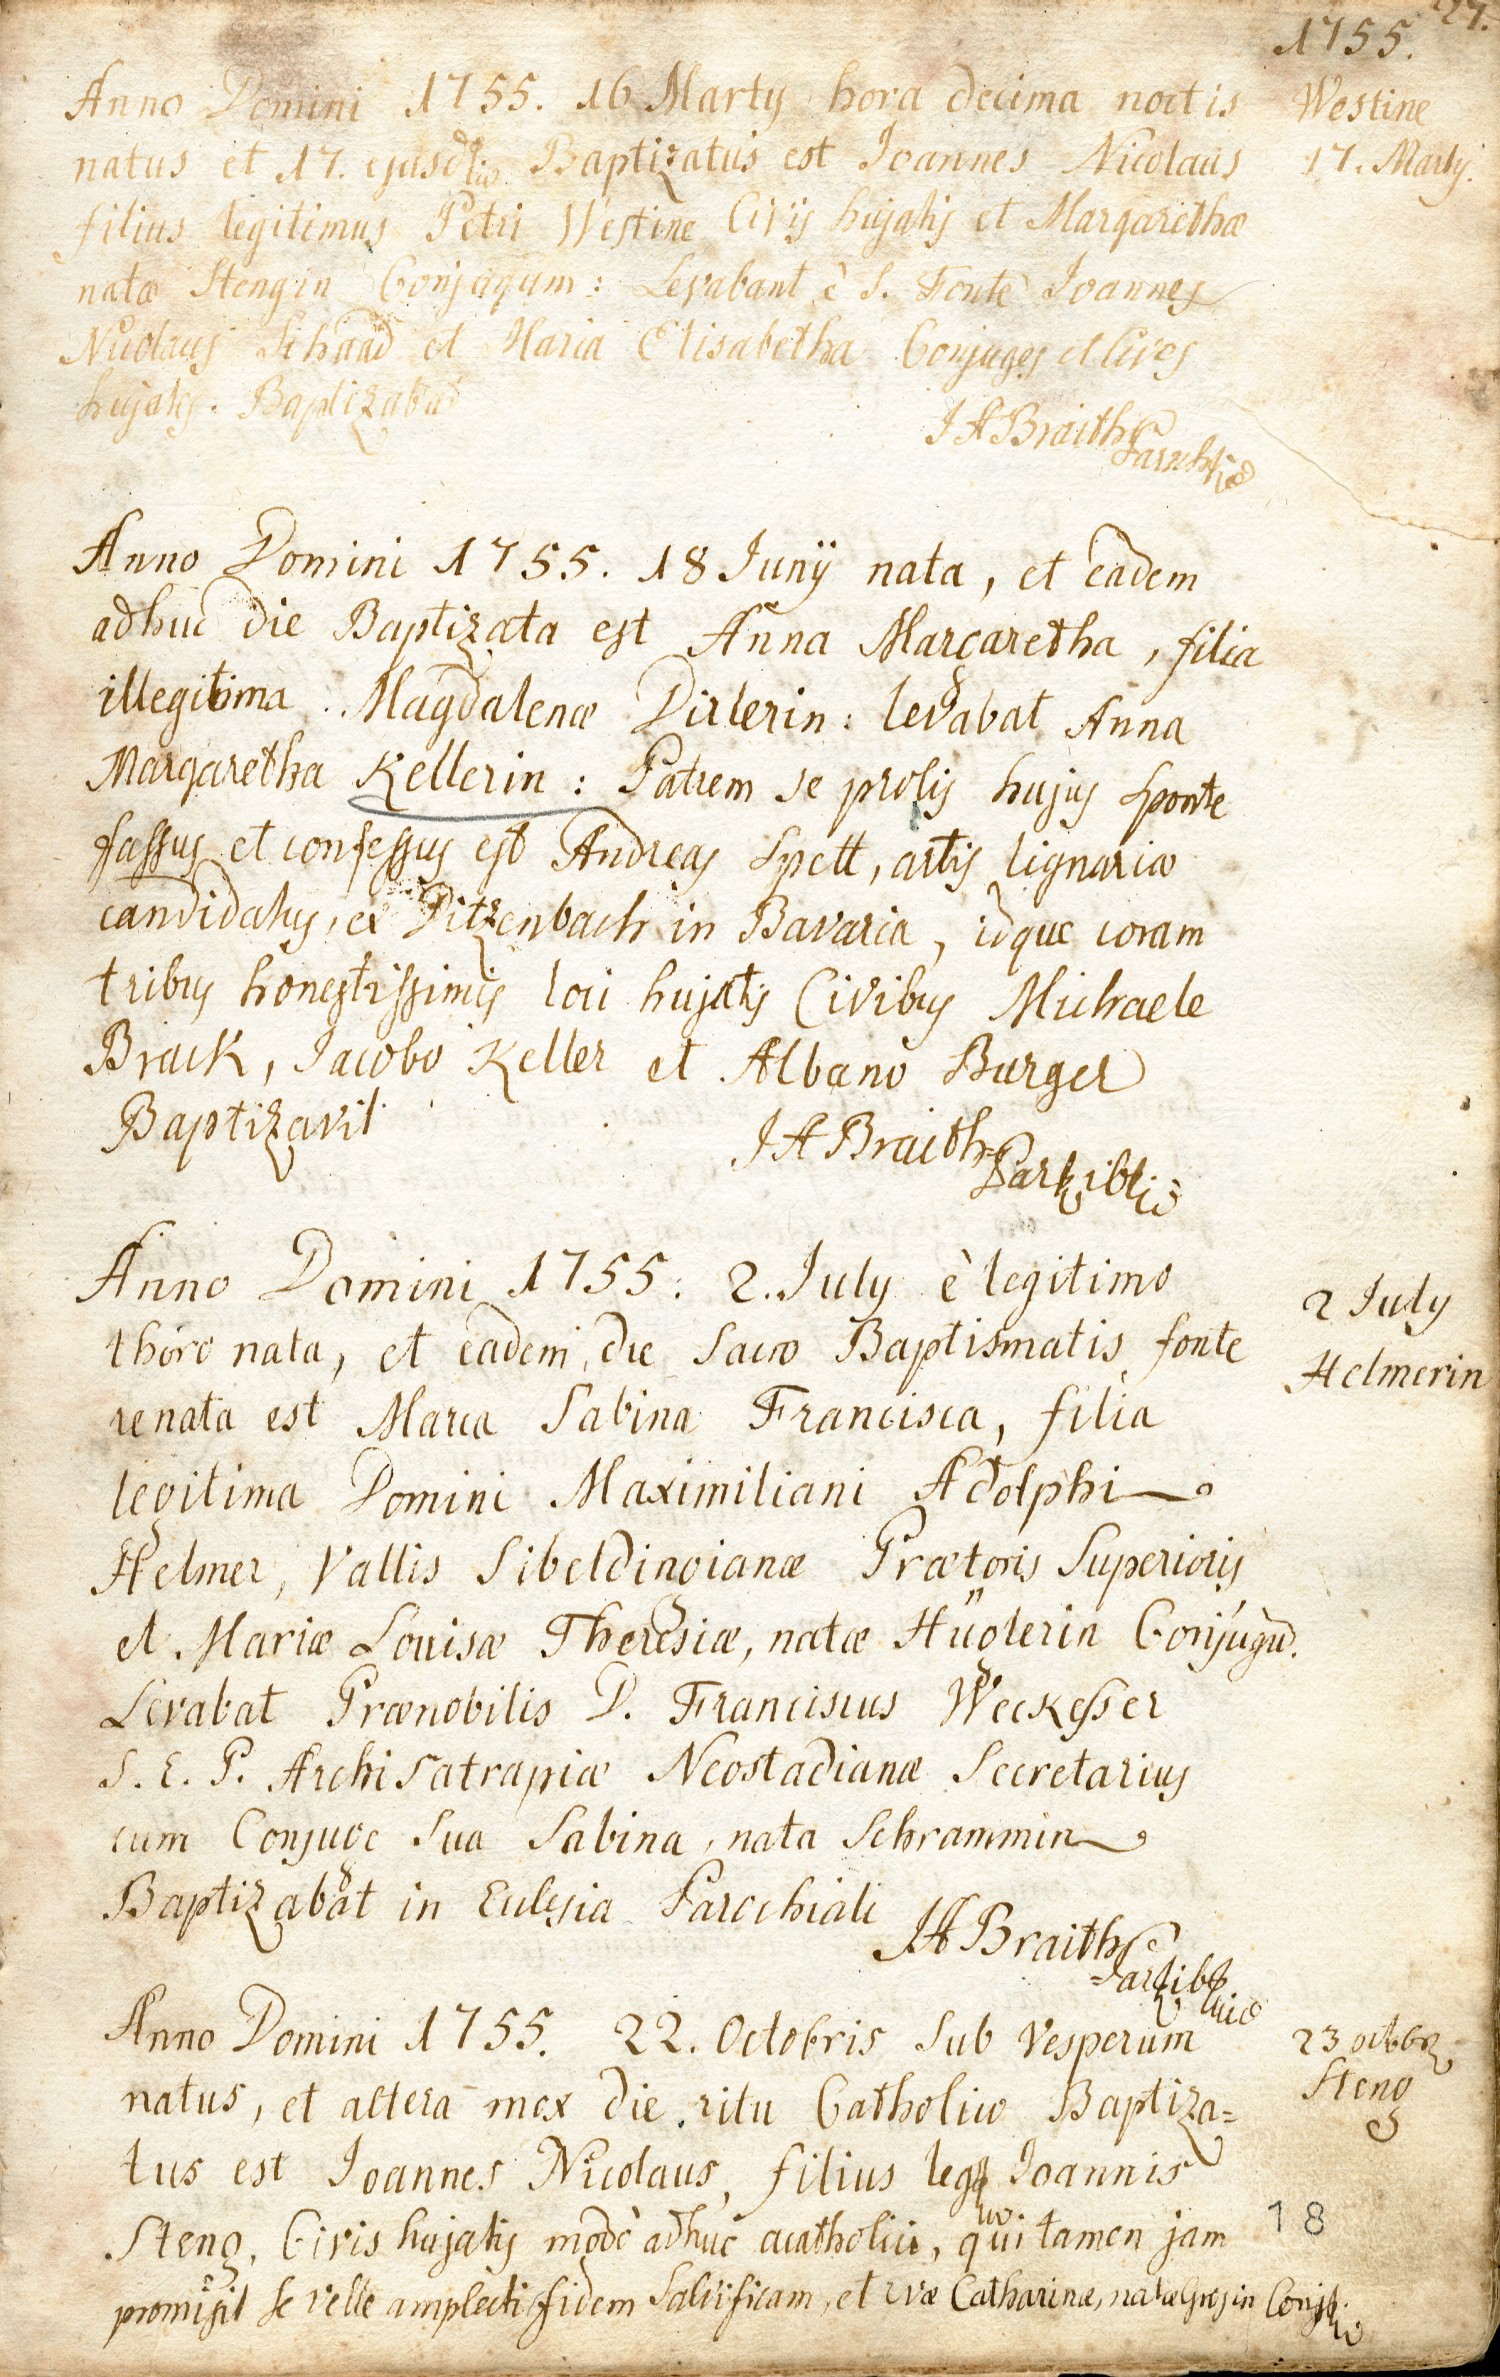 27.
1755.
Anno Domini 1755. 16 Martÿ hora decima noctis
Westine
natus et 17. ejusd. Baptizatus est Joannes Nicolaus
17. Martÿ.
filius legitimus Petri Westine Civis hujatis et Margarethæ
natæ Stengin Conjugum: Levabant è S. Fonte Joannes
Nicolaus Schaad et Maria Elisabetha Conjuges et Cives
hujates. Baptizabat
J A Braith
Anno Domini 1755. 18 Junÿ nata, et eadem
adhuc die Baptizata est Anna Margaretha, filia
illegitima Magdalenæ Dirlerin: levabat Anna
Margaretha Kellerin: Patrem se prolis hujus sponte
fassus et confessus est Andreas Spett, artis lignariæ
candidatus, ex Ditzenbach in Bavaria, idque coram
tribus honestissimis loci hujatis Civibus Michaele
Brack, Jacobo Keller et Albano Burger
Baptizavit
J A Braith
Anno Domini 1755. 2. July è legitimo
2 July
thoro nata, et eadem die Sacro Baptismatis fonte
Helmerin
renata est Maria Sabina Francisca, filia
legitima Domini Maximiliani Adolphi
Helmer, Vallis Sibeldingianæ Prætoris Superioris
et Mariæ Louisæ Theresiæ, natæ Hüglerin Conjugũ.
Levabat Prænobilis D. Franciscus Weckesser
S. E. P. Archi Satrapiæ Neostadianæ Secretarius
cum Conjuge Sua Sabina, nata Schrammin
Baptizabat in Eclesia Parochiali
JA Braith
Anno Domini 1755. 22. Octobris Sub Vesperum
23 octobr
natus, et altera mox die ritu Catholico Baptiza=
Steng
tus est Joannes Nicolaus, filius leg Joannis
Steng, Civis hujatis modò adhuc acatholici, qui tamen jam
18
promisit se velle amplecti fidem Salvificam, et Catharinæ, natæ Conj